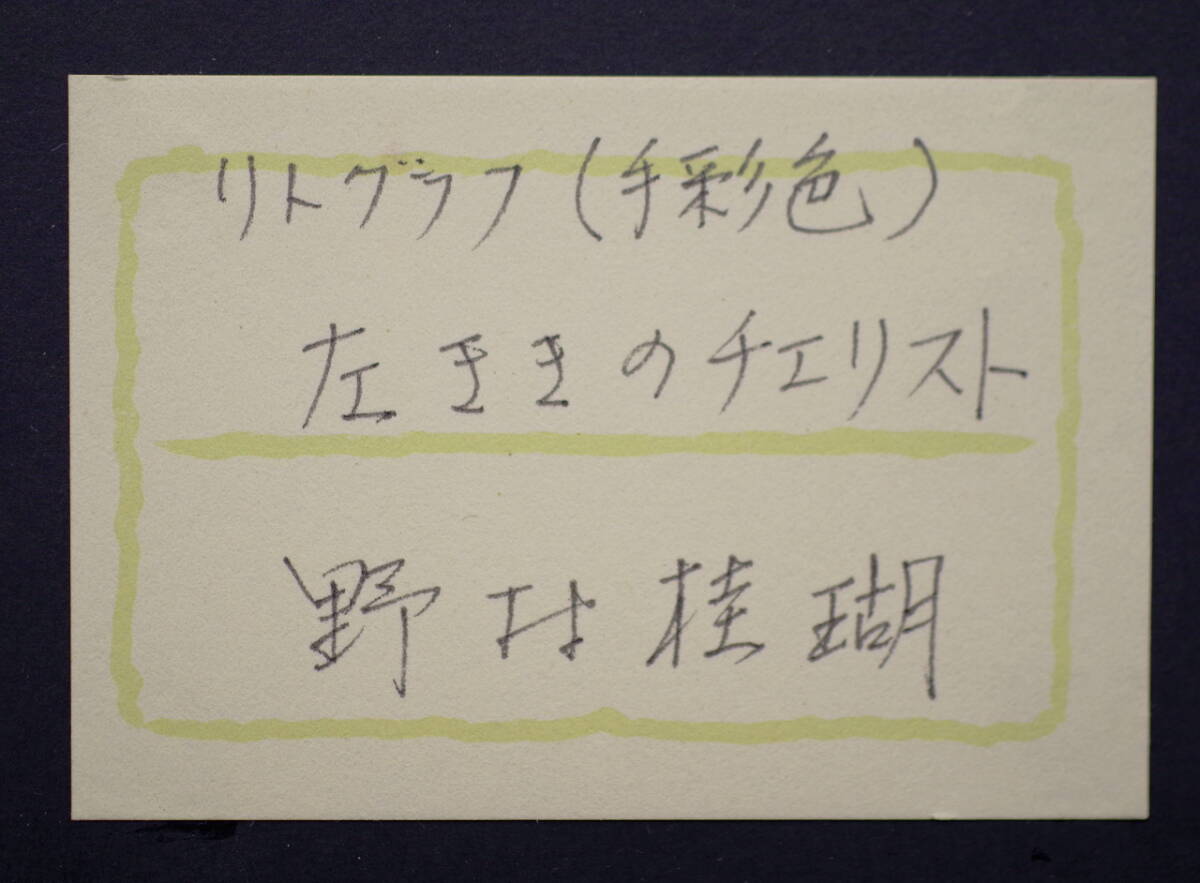 リトグラフ(手彩色)
左ききのチェリスト
野村桂瑚